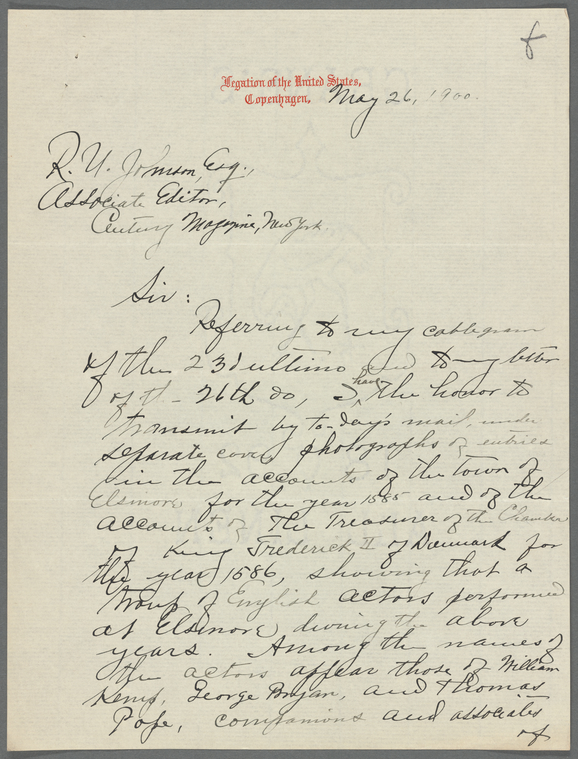 8
Legation of the United States,
Copenhagen, May 26, 1900.
R. U. Johnson, Esq.,
Associate Editor,
Century Magazine, New York.
Sir:
Referring to my cablegram
of the 23d ultimo and to my letter
of the 26th do, I have the honor to
transmit by to-day's mail, under
separate cover photographs of entries
in the accounts of the town of
Elsinore for the year 1585 and of the
accounts of the Treasurer of the Chamber
of King Frederick II of Danmark for
the year 1586, showing that a
troup of English actors performed
at Elsinore during the above
years. Among the names of
the actors appear those of William
Kemp, George Bryan, and Thomas
Pope, companions and associates
of